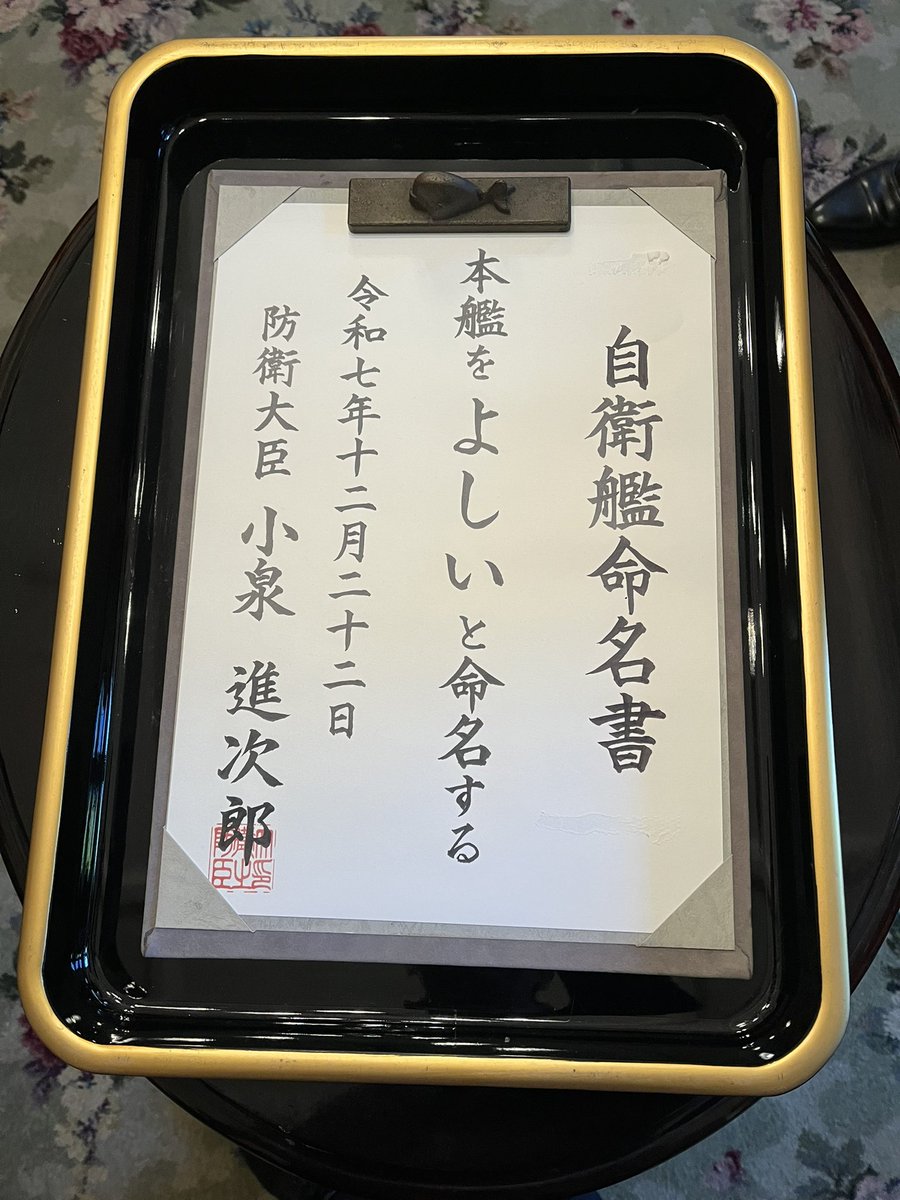 自衛艦命名書
本艦をよしいと命名する
令和七年十二月二十二日
防衛大臣 小泉 進次郎